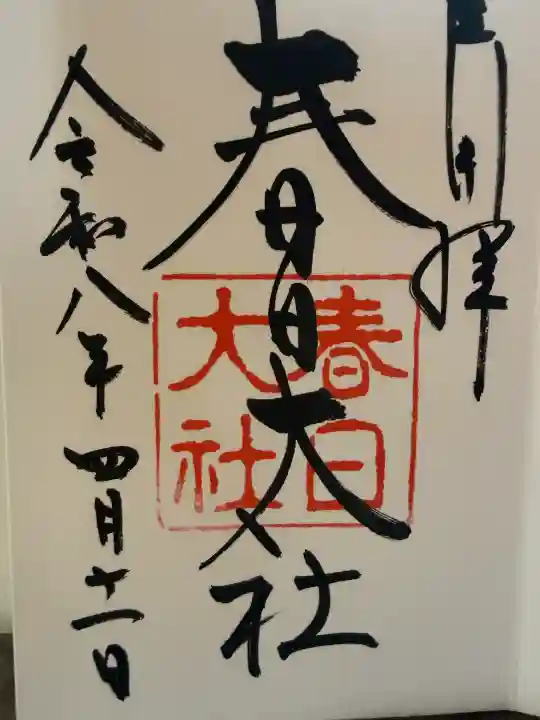 奉拝
春日大社
春日
大社
令和八年四月十一日